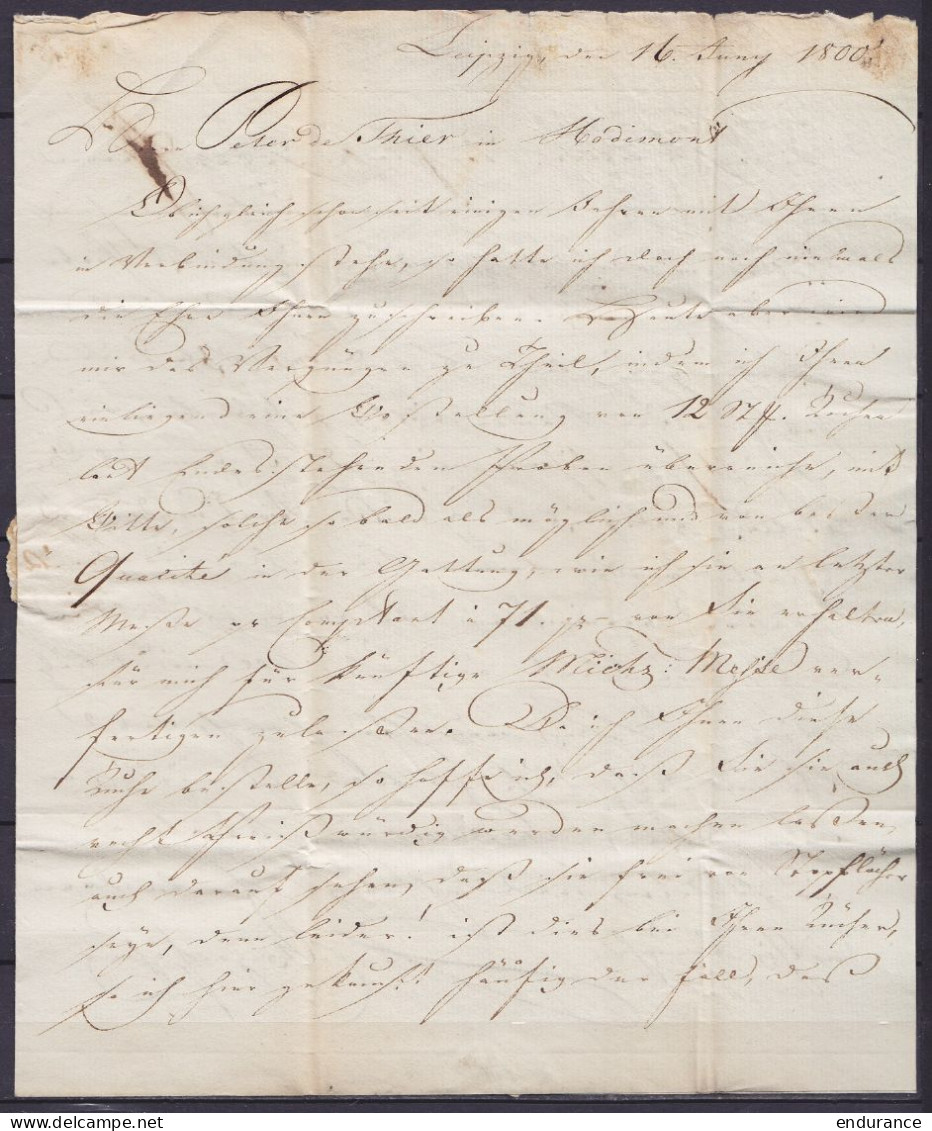 Leipzig, den 16. Juny 1800.
Peter de Thier in Hodimont
Ob ich gleich schon seit einigen Jahren mit Ihnen
in Verbindung stehe, so hatte ich doch noch niemals
die Ehre Ihnen zu schreiben. Heute aber wird
mir das Vergnügen zu Theil, indem ich Ihnen
einliegend eine Bestellung von 12 Stk. Tücher
laut Endesstehenden Proben überreiche, mit
Bitte, solche so bald als möglich und von bester
Qualité in der Gattung, wie ich sie an letzter
Messe pr Comptant à 71. von Sie erhalten,
für mich für künftige Michz: Messe ver-
fertigen zu lassen. Da ich Ihnen diese
Tuche bestelle, so hoffe ich, daß Sie sie auch
recht Preißwürdig werden machen lassen,
auch darauf sehen, daß sie frei von Stopflöcher
seyn, denn leider! ist dies bei Ihren Tücher,
so ich hier gekauft häufig der Fall, das
endurance